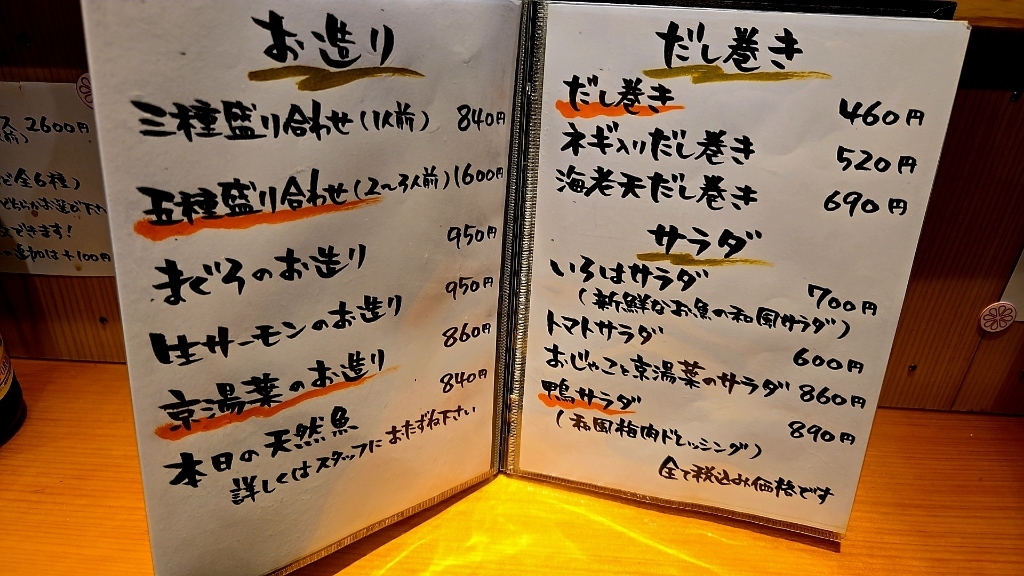 お造り
三種盛り合わせ(1人前) 840円
五種盛り合わせ(2〜3人前) 1600円
まぐろのお造り 950円
生サーモンのお造り 950円
京湯葉のお造り 860円
本日の天然魚 840円
詳しくはスタッフにおたずね下さい
だし巻き
だし巻き 460円
ネギ入りだし巻き 520円
海老天だし巻き 690円
サラダ
いろはサラダ 700円
(新鮮なお魚の和風サラダ)
トマトサラダ 600円
おじゃこと京湯葉のサラダ 860円
鴨サラダ 890円
(和風梅肉ドレッシング)
全て税込み価格です
2600円
全6種)
できます!
追加は+100円